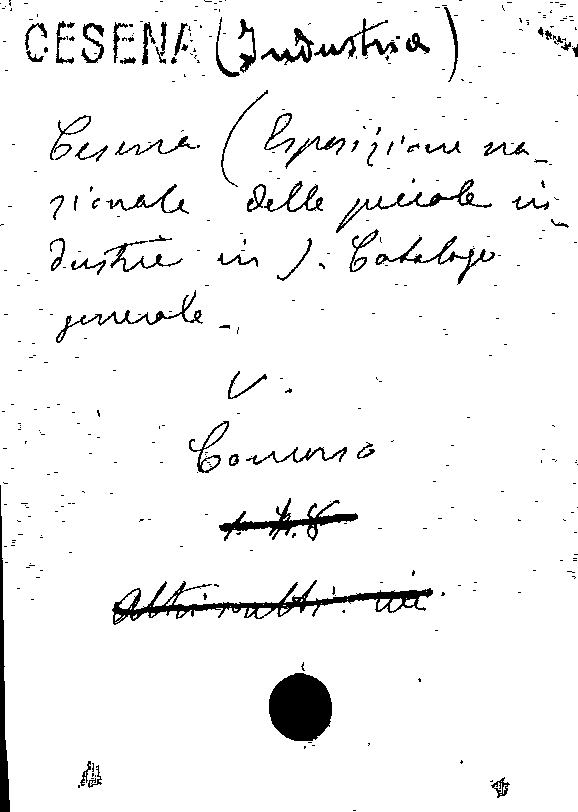 CESENA (Industria)
Cesena (Esposizione na-
zionale delle piccole in-
dustrie in ). Catalogo
generale -
V.
Concorso